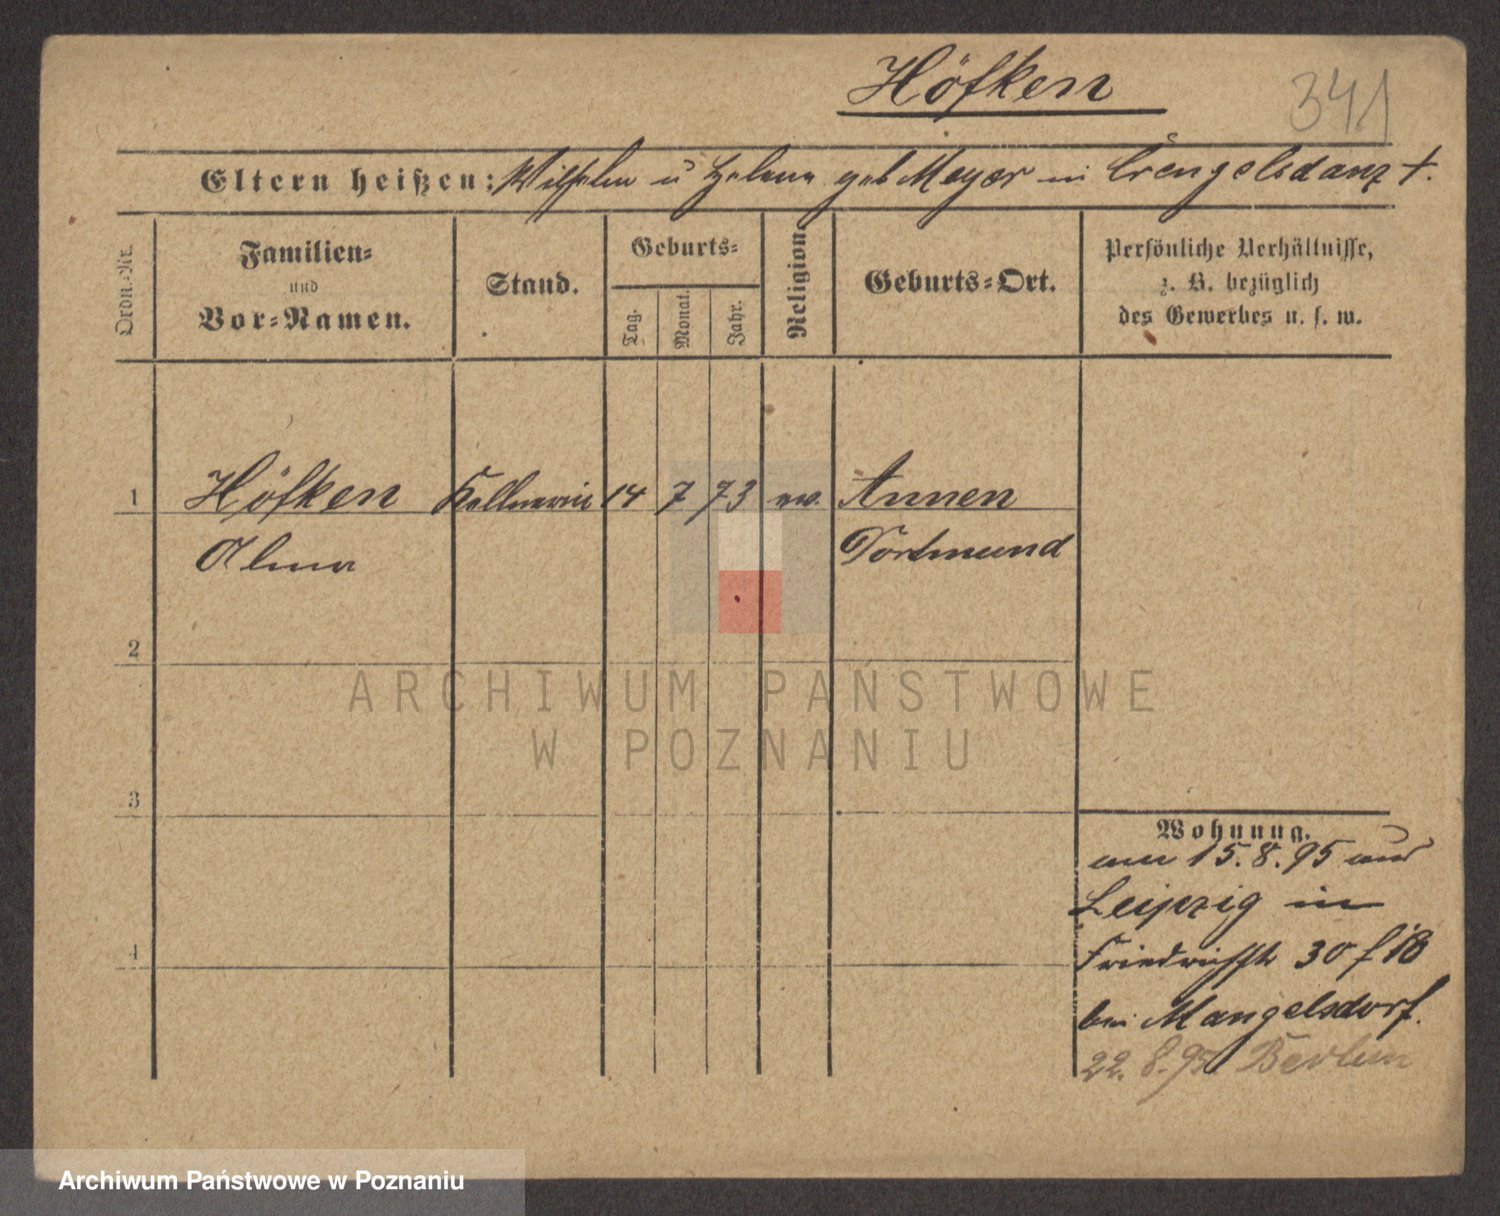 Höfken
341
Eltern heißen: Wilhelm u Helene geb Meyer in Crengelsdanz †.
Ordn.-Nr.
Familien-
und
Vor-Namen.
Stand.
Geburts-
Tag.
Monat.
Jahr.
Religion.
Geburts-Ort.
Persönliche Verhältnisse,
z. B. bezüglich
des Gewerbes u. s. w.
1 Höfken Kellnerin 14 7 73 ev. Annen
Alma Dortmund
2
3
4
Wohnung.
am 15.8.95 aus
Leipzig in
Friedrichstr 30 f 18
bei Mangelsdorf.
22. 8. 95. Berlin
ARCHIWUM PAŃSTWOWE
W POZNANIU
Archiwum Państwowe w Poznaniu